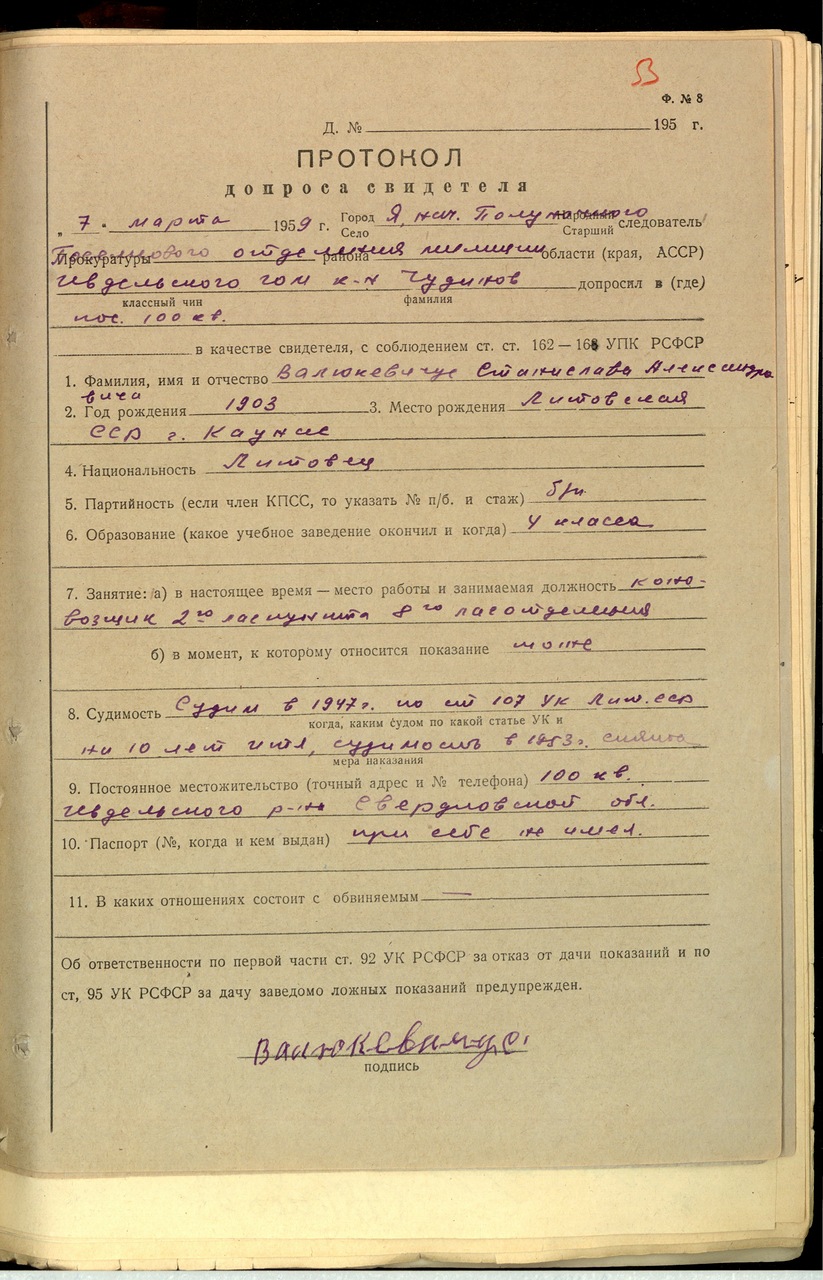 53
Ф. № 8
Д. № 195 г.
ПРОТОКОЛ
допроса свидетеля
„ 7. марта 1959 г. Город Село Я, нач. Полуночного Народный Старший следователь
Прокуратуры Поселкового отделения района милиции области (края, АССР)
Ивдельского гом к-н Чудинов допросил в (где)
классный чин фамилия
пос. 100 кв.
в качестве свидетеля, с соблюдением ст. ст. 162 — 168 УПК РСФСР
1. Фамилия, имя и отчество Валюкевичус Станислава Александра
вича
2. Год рождения 1903 3. Место рождения Литовская
ССР г. Каунас
4. Национальность Литовец
5. Партийность (если член КПСС, то указать № п/б. и стаж) б/п
6. Образование (какое учебное заведение окончил и когда) 4 класса
7. Занятие: а) в настоящее время — место работы и занимаемая должность коно-
возчик 2го лагпункта 8го лаготделения
б) в момент, к которому относится показание тоже
8. Судимость Судим в 1947г. по ст 107 УК Лит.сср
когда, каким судом по какой статье УК и
на 10 лет итл, судимость в 1953г. снята
мера наказания
9. Постоянное местожительство (точный адрес и № телефона) 100 кв.
Ивдельского р-на Свердловской обл.
10. Паспорт (№, когда и кем выдан) при себе не имел.
11. В каких отношениях состоит с обвиняемым —
Об ответственности по первой части ст. 92 УК РСФСР за отказ от дачи показаний и по
ст, 95 УК РСФСР за дачу заведомо ложных показаний предупрежден.
Валюкевичус.
подпись